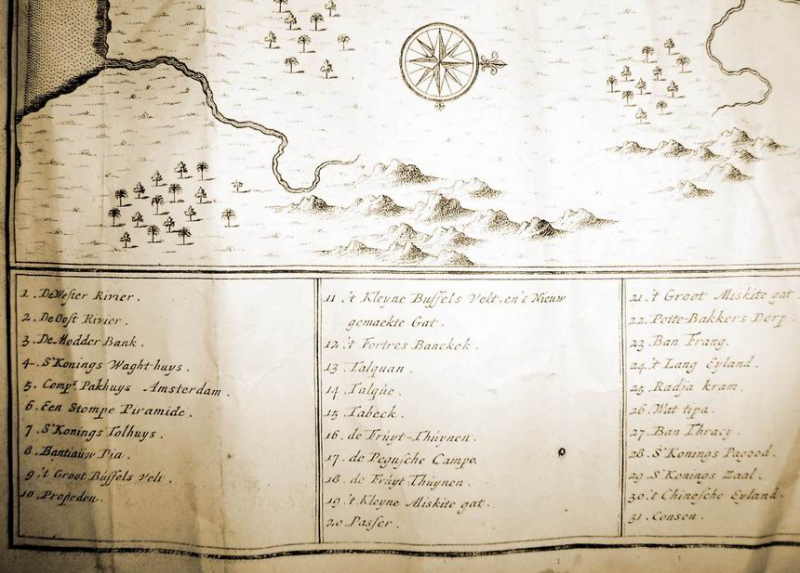 1. De Wester Rivier.
2. De Oost Rivier.
3. De Modder Bank.
4. S'Konings Waght-huys.
5. Comps. Pakhuys Amsterdam.
6. Een Stompe Piramide.
7. S'Konings Tolhuys.
8. Bantiauw Pia.
9. 't Groot Buffels Velt.
10. Propeden.
11. 't Kleyne Buffels Velt. en't Nieuw
gemaekte Gat.
12. 't Fortres Banckok.
13. Talquan.
14. Talqùe.
15. Tabeck.
16. de Frùyt-Thùynen.
17. de Pegusche Campo.
18. de Frùyt-Thùynen.
19. 't Kleyne Miskite gat.
20. Passer.
21. 't Groot Miskite gat.
22. Potte-Bakkers Dorp.
23. Ban Trang.
24. 't Lang Eyland.
25. Radja kram.
26. Wat tipa.
27. Ban Thracy.
28. S'Konings Pagood.
29. S'Konings Zaal.
30. 't Chinesche Eyland.
31. Consen.